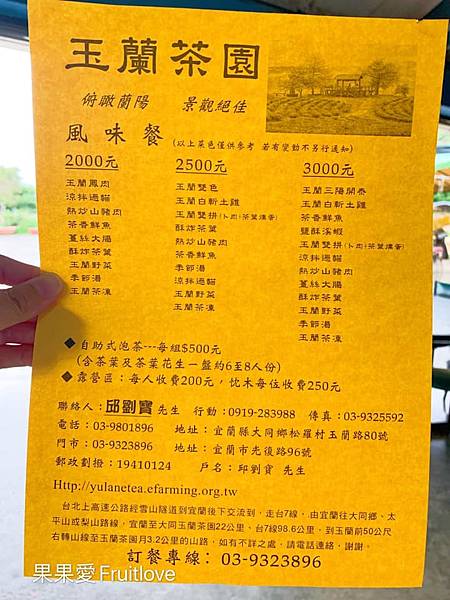 玉蘭茶園
俯瞰蘭陽 景觀絕佳
風味餐(以上菜色僅供參考 若有變動不另行通知)
2000元
玉蘭鳳肉
涼拌過貓
熱炒山豬肉
茶香鮮魚
薑絲大腸
酥炸茶葉
玉蘭野菜
季節湯
玉蘭茶凍
2500元
玉蘭雙色
玉蘭白斬土雞
玉蘭雙拼(卜肉+茶葉燻蛋)
熱炒山豬肉
茶香鮮魚
季節湯
涼拌過貓
酥炸茶葉
玉蘭野菜
玉蘭茶凍
3000元
玉蘭三陽開泰
玉蘭白斬土雞
茶香鮮魚
鹽酥溪蝦
玉蘭雙拼(卜肉+茶葉燻蛋)
涼拌過貓
熱炒山豬肉
薑絲大腸
酥炸茶葉
玉蘭野菜
季節湯
玉蘭茶凍
◆自助式泡茶---每組$500元
(含茶葉及茶葉花生一盤約6至8人份)
◆露營區：每人收費200元，枕木每位收費250元
聯絡人：邱劉寶 先生 行動：0919-283988 傳真：03-9325592
電話：03-9801896 地址：宜蘭縣大同鄉松羅村玉蘭路80號
門市：03-9323896 地址：宜蘭市光復路96號
郵政劃撥：19410124 戶名：邱劉寶 先生
Http://yulanetea.efarming.org.tw
台北上高速公路經雪山隧道到宜蘭後下交流到，走台7線，由宜蘭往大同鄉、太
平山或梨山路線，宜蘭至大同玉蘭茶園22公里、台7線98.6公里，到玉蘭前50公尺
右轉山線至玉蘭茶園月3.2公里的山路，如有不詳之處，請電話連絡，謝謝。
訂餐專線： 03-9323896
果果愛Fruitlove